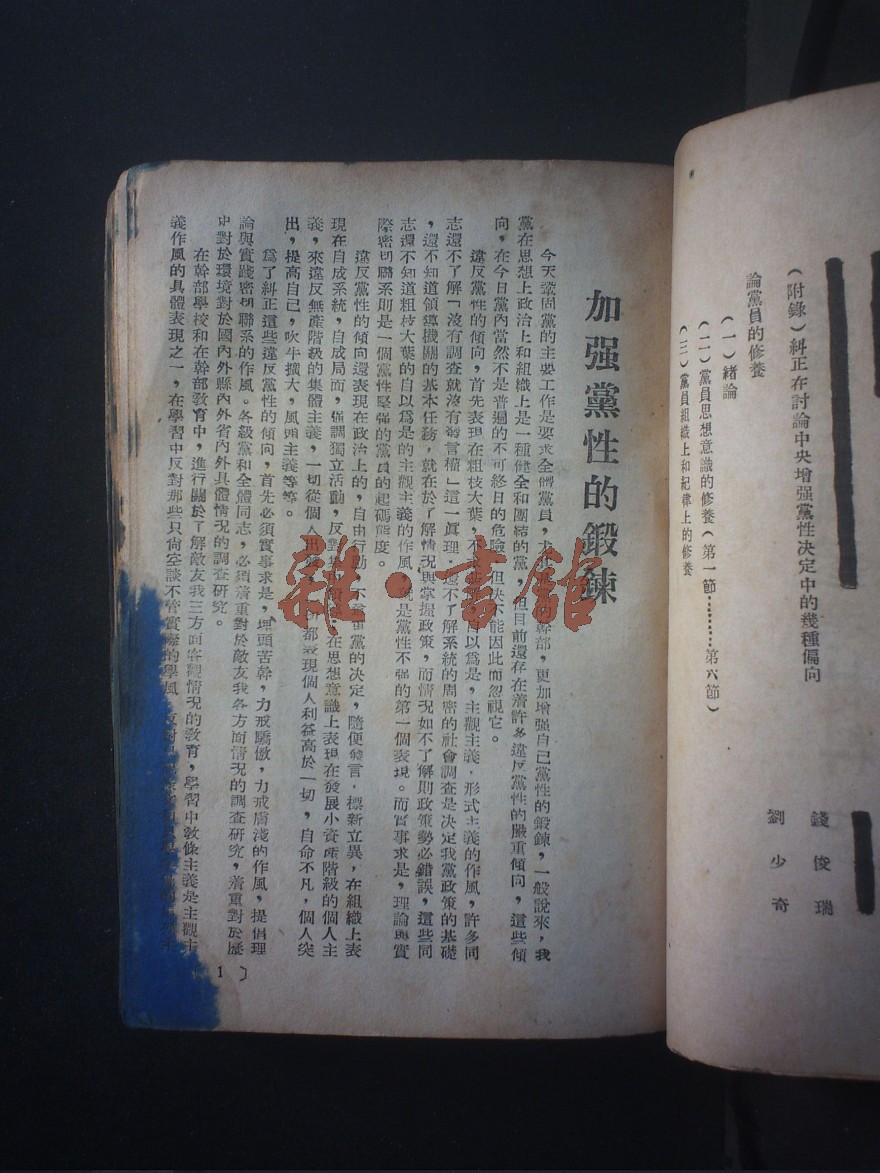 (附錄)糾正在討論中央增强黨性决定中的幾種偏向
錢俊瑞
論黨員的修養
劉少奇
(一)緒論
(二)黨員思想意識的修養(第一節………第六節)
(三)黨員組織上和紀律上的修養
加强黨性的鍛鍊
今天鞏固黨的主要工作是要求全體黨員,幹部,更加增强自己黨性的鍛鍊,一般說來,我
黨在思想上政治上和組織上是一種健全和團結的黨,但目前還存在着許多違反黨性的嚴重傾向,這些傾
向,在今日黨內當然不是普遍的不可終日的危險,但决不能因此而忽視它。
違反黨性的傾向,首先表現在粗枝大葉,不自以爲是,主觀主義,形式主義的作風,許多同
志還不了解「沒有調查就沒有發言權」這一眞理,還不了解系統的周密的社會調查是决定我黨政策的基礎
,還不知道領導機關的基本任務,就在於了解情况與掌握政策,而情况如不了解則政策勢必錯誤,這些同
志還不知道粗枝大葉的自以爲是的主觀主義的作風,是黨性不强的第一個表現。而實事求是,理論與實
際密切聯系則是一個黨性堅强的黨員的起碼態度。
違反黨性的傾向還表現在政治上的,自由行動,不黨的决定,隨便發言,標新立異,在組織上表
現在自成系統,自成局面,强調獨立活動,反對在思想意識上表現在發展小資產階級的個人主
義,來違反無產階級的集體主義,一切從個人出都表現個人利益高於一切,自命不凡,個人突
出,提高自己,吹牛擴大,風頭主義等等。
爲了糾正這些違反黨性的傾向,首先必須實事求是,埋頭苦幹,力戒驕傲,力戒膚淺的作風,提倡理
論與實踐密切聯系的作風。各級黨和全體同志,必須着重對於敵友我各方面情况的調查研究,着重對於歷
史對於環境對於國內外縣內外省內外具體情况的調查研究。
在幹部學校和在幹部教育中,進行關於了解敵友我三方面客觀情况的教育,學習中教條主義是主觀主
義作風的具體表現之一,在學習中反對那些只尙空談不管實際的學風
1
雜·書館